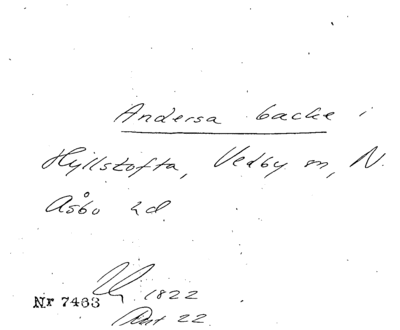 Andersa backe i
Hyllstofta, Vedby sn, N.
Åsbo hd
1822
Nr 7463
Akt 22